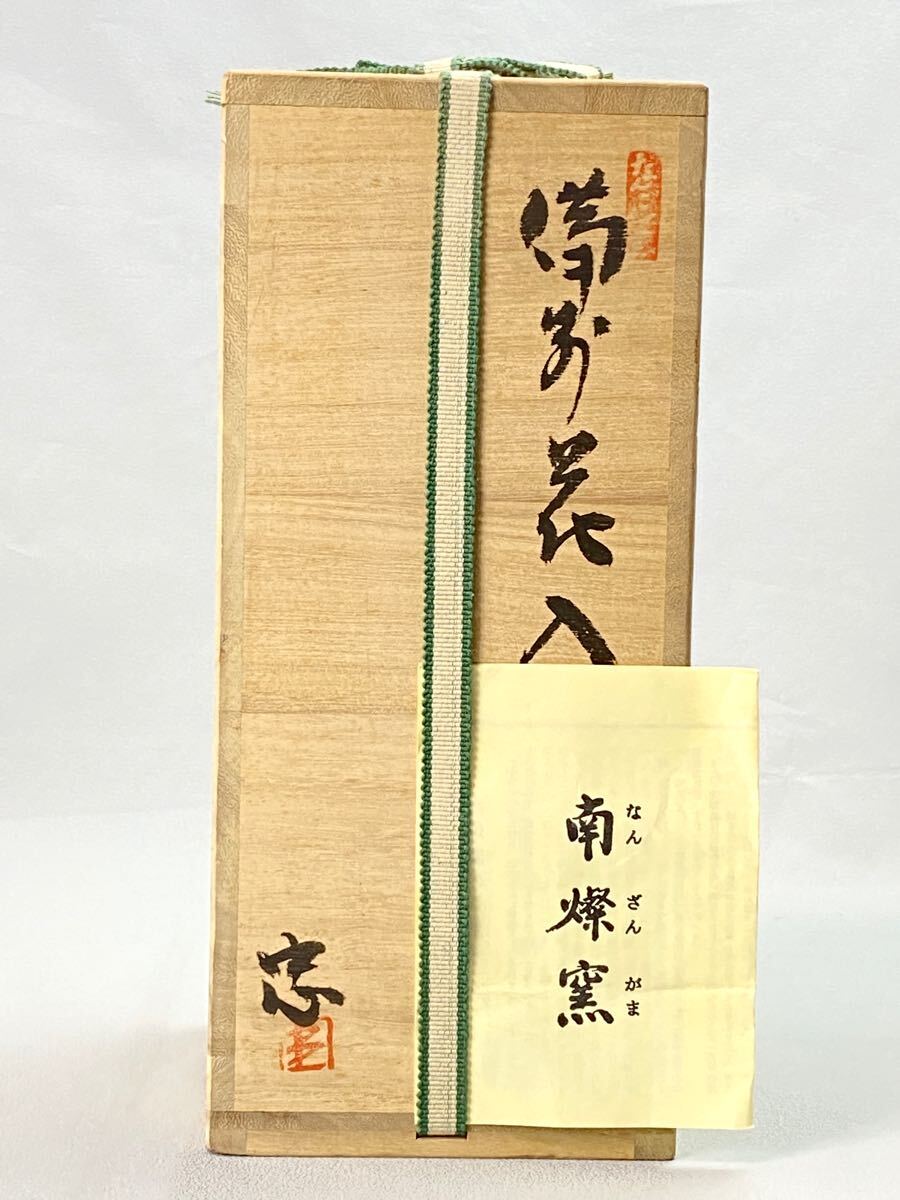 備前花入
忠
南燦窯
なんざんがま